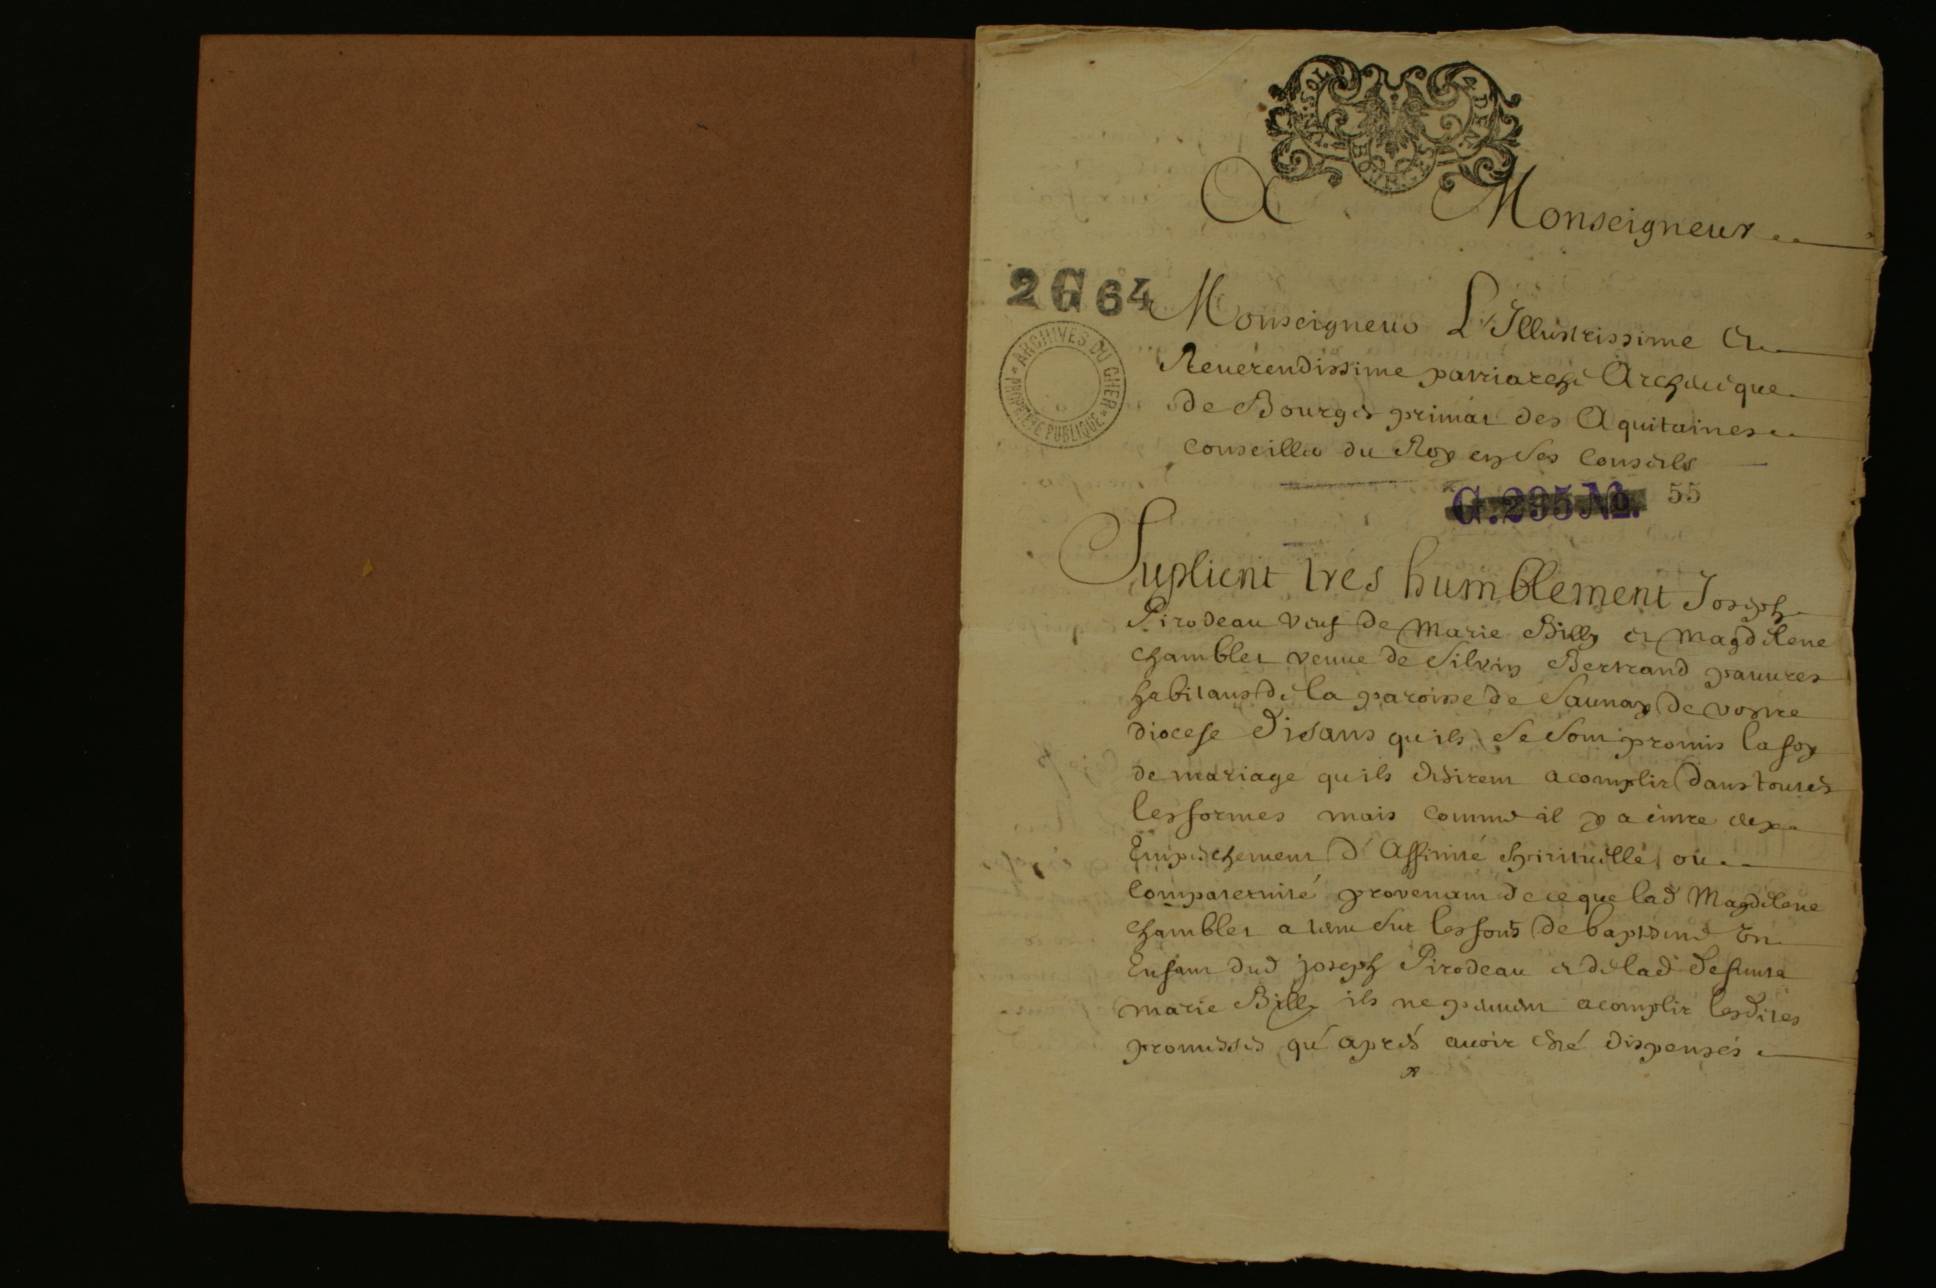 A Monseigneur
2 G 64
ARCHIVES DU CHER
PROPRIÉTÉ PUBLIQUE
Monseigneur L'Illustrissime Et
Reuerendissime patriarche Archeueque
de Bourges primat des Aquitaines
Conseiller du Roy en Ses Conseils
G. 295 No. 55
Suplient tres humblement Joseph
Pirodeau veuf de Marie Billy et Magdelene
Chamblet veuue de Silvin Bertrand pauures
habitans de la paroisse de Saunay de vostre
diocese Disans quils se sont promis la foy
de mariage quils desirent acomplir dans toutes
les formes mais comme il y a entre eux
Empeschement D'Affinité Spirituelle ou
Compaternité provenant de ce que lad Magdelene
Chamblet a tenu sur les fonts de baptesme Un
Enfant dud joseph Pirodeau et de lad defunte
marie Billy ils ne peuuent acomplir lesdites
promesses qu'aprés auoir esté dispensés